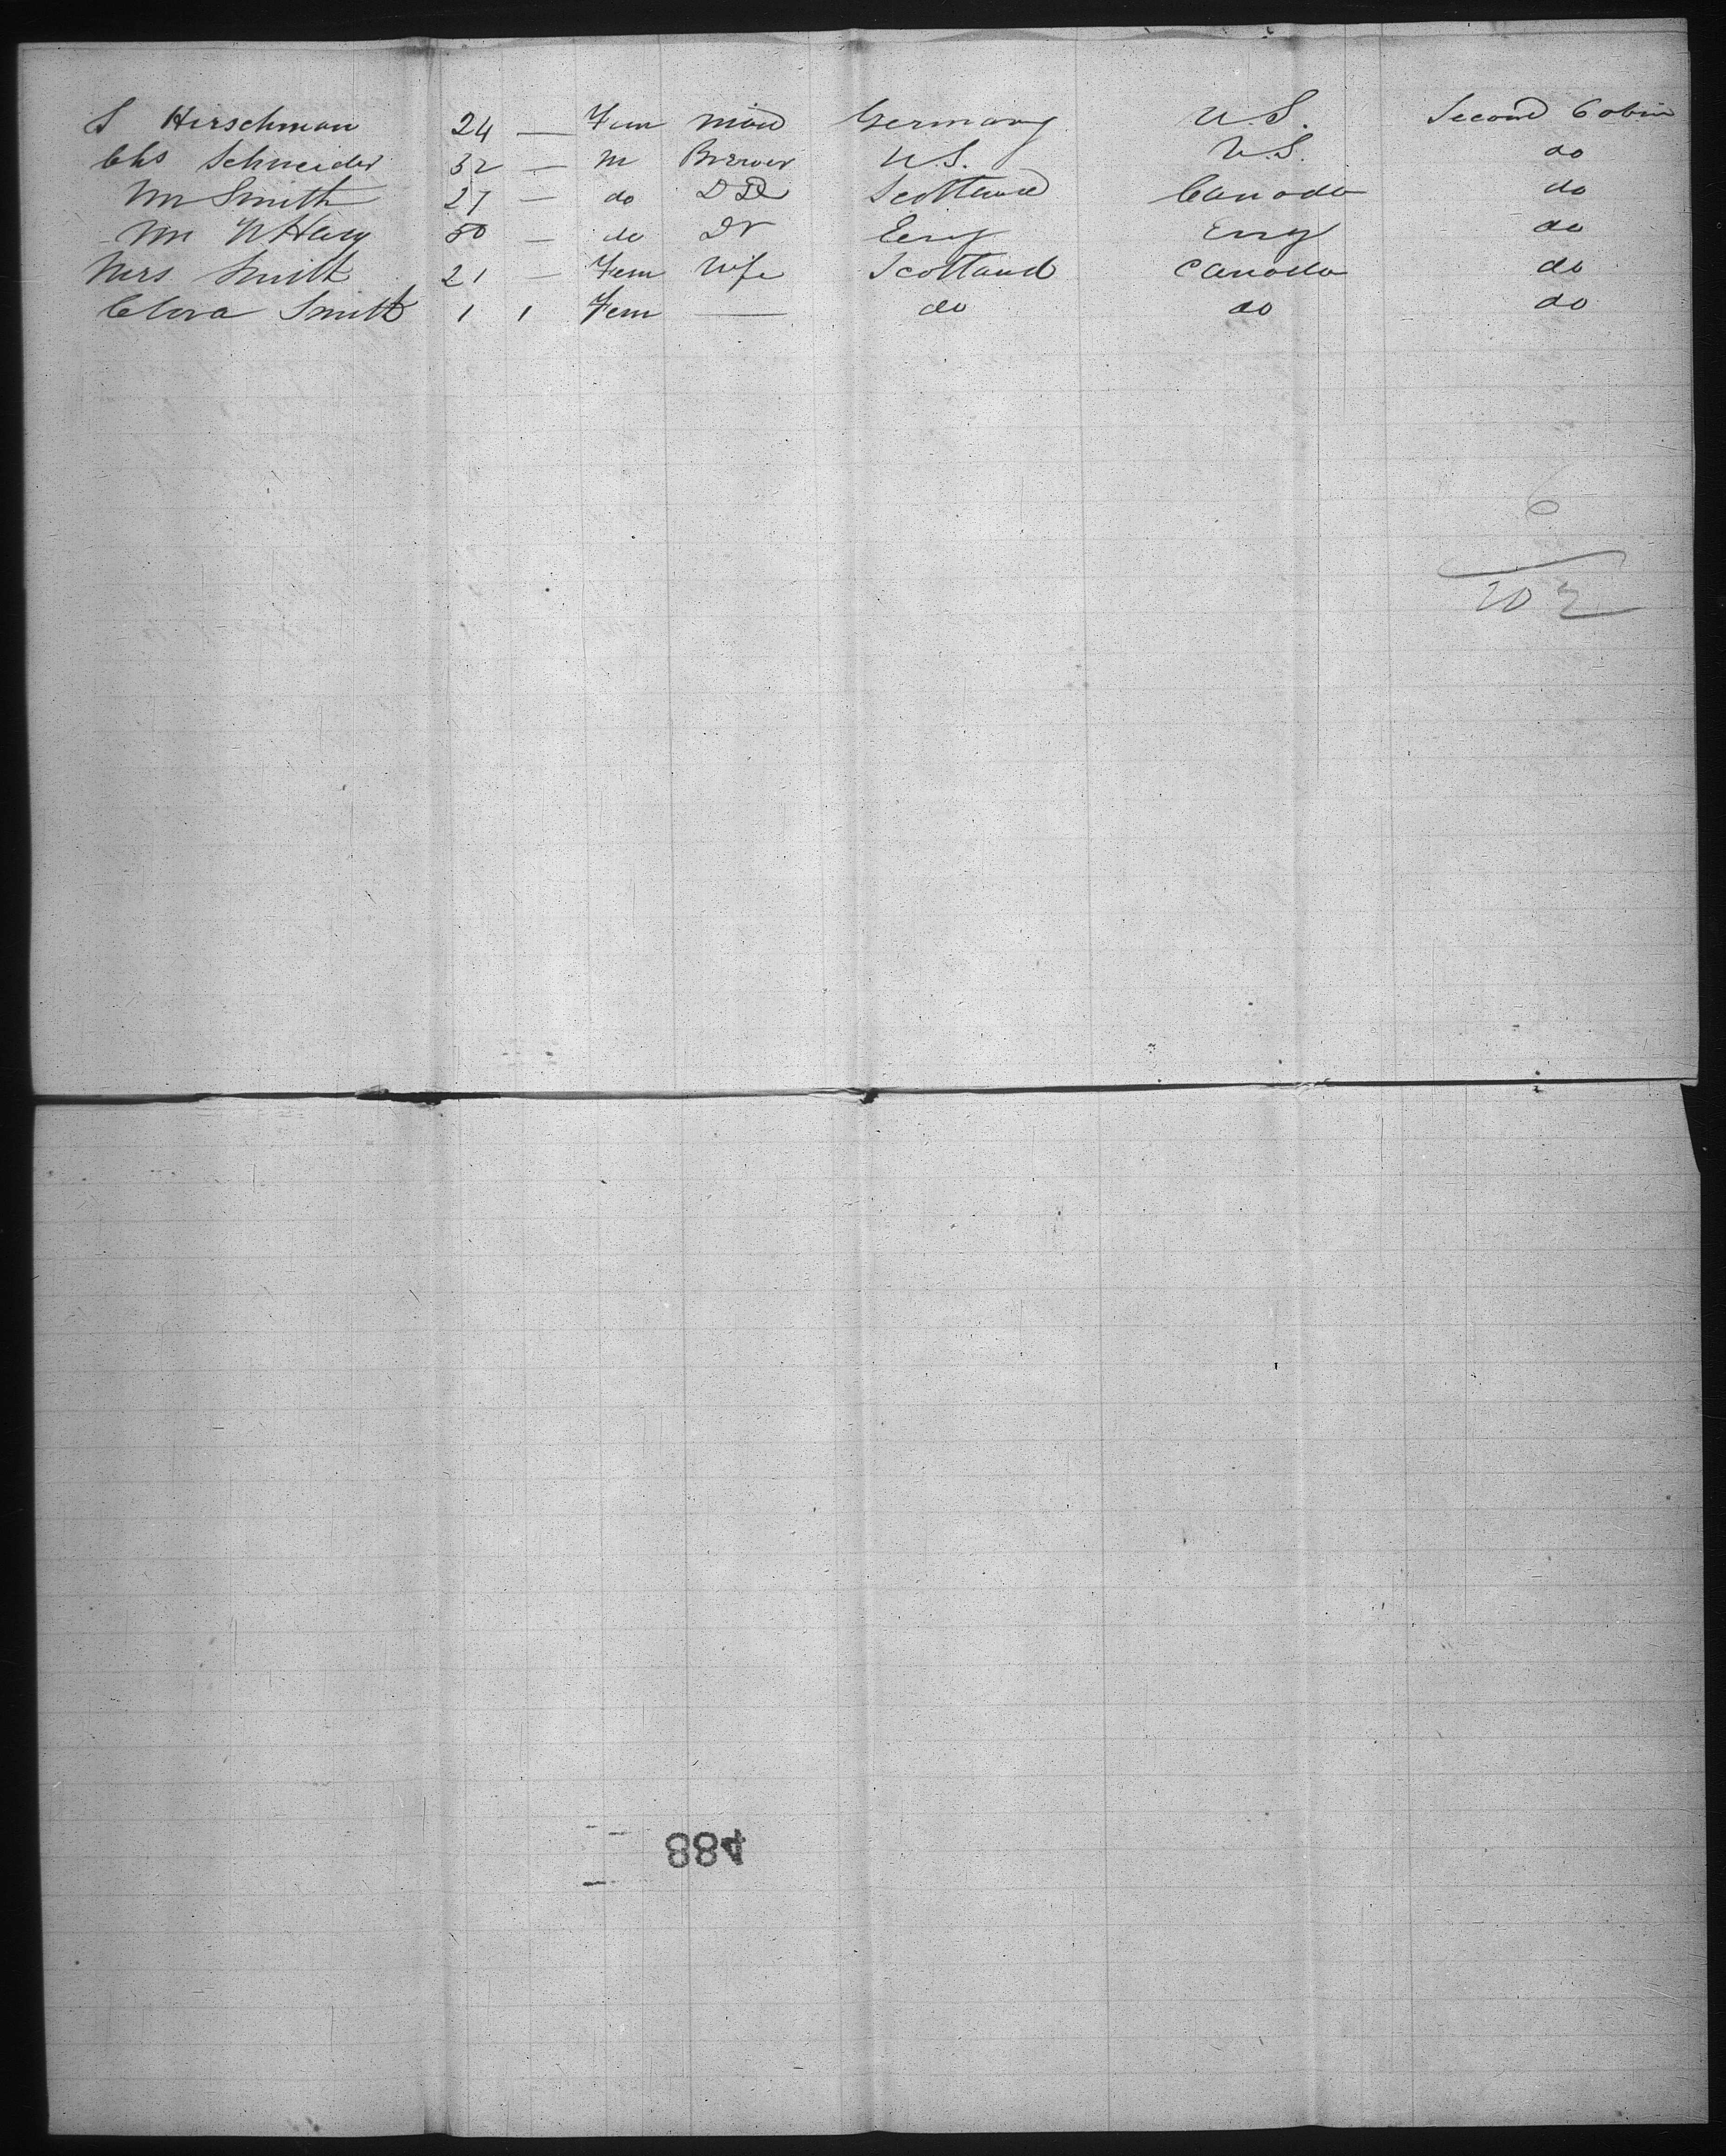 S Hirschman 24 — Fem Maid Germany U.S. Second Cabin
Chs Schneider 32 — M Brewer U.S. U.S. do
Mr Smith 27 — do DD Scotland Canada do
Mr 50 — do Dr Eng Eng do
Mrs Smith 21 — Fem Wife Scotland Canada do
Clora Smith 1 1 Fem — do do do
6
202
884